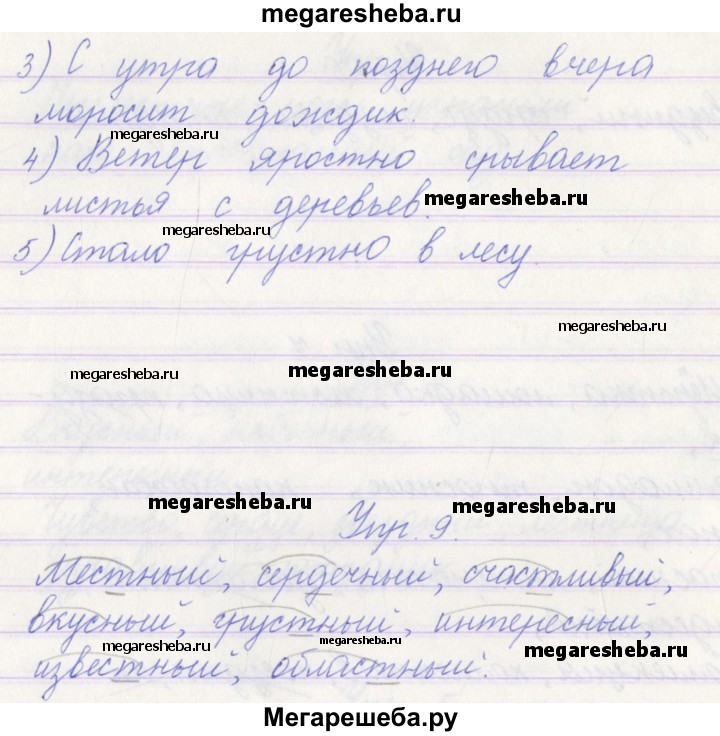 megaresheba.ru
3) С утра до позднего вчера
моросит дождик.
megaresheba.ru
4) Ветер яростно срывает
листья с деревьев.
megaresheba.ru
megaresheba.ru
5) Стало грустно в лесу.
megaresheba.ru
megaresheba.ru
megaresheba.ru
megaresheba.ru
megaresheba.ru
Упр. 9.
Местный, сердечный, счастливый,
вкусный, грустный, интересный,
megaresheba.ru
megaresheba.ru
megaresheba.ru
известный, областный.
Мегарешеба.ру